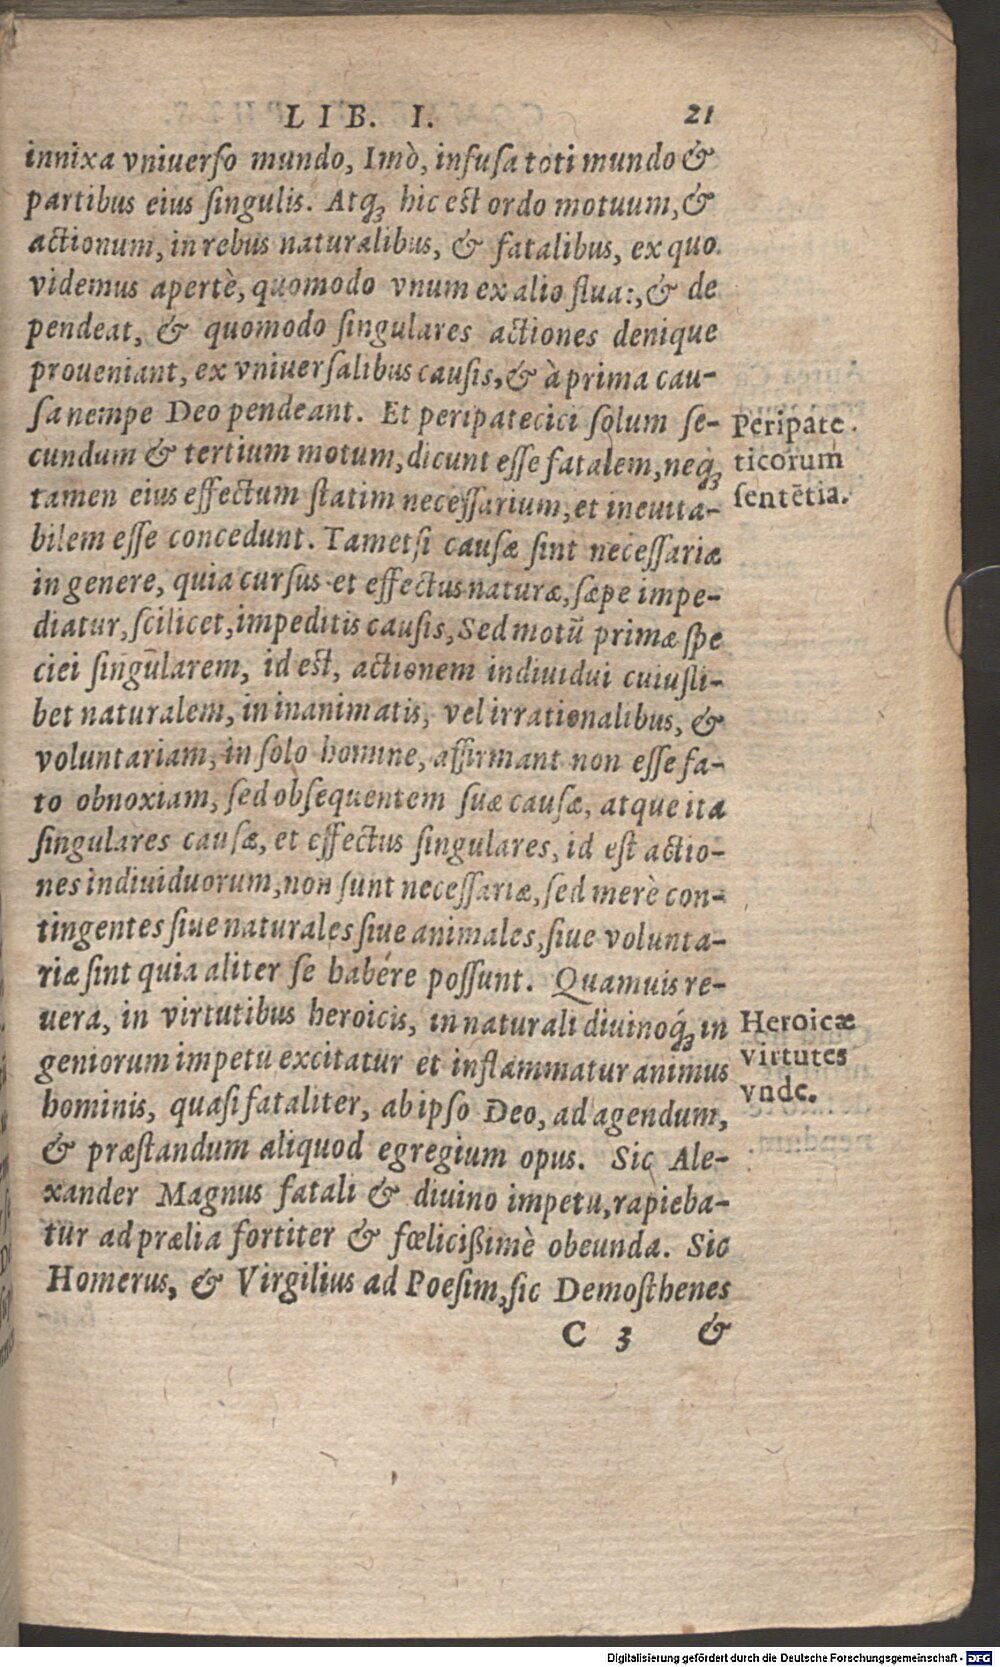 LIB. I.
21
innixa vniuerſo mundo, Imò, infuſa toti mundo &
partibus eius ſingulis. Atq́; hic est ordo motuum, &
actionum, in rebus naturalibus, & fatalibus, ex quo
videmus apertè, quomodo vnum ex alio flua:, & de
pendeat, & quomodo ſingulares actiones denique
proueniant, ex vniuerſalibus cauſis, & à prima cau-
ſa nempe Deo pendeant. Et peripatecici ſolum ſe-
cundum & tertium motum, dicunt eſſe fatalem, neq́;
tamen eius effectum ſtatim neceſſarium, et ineuita-
bilem eſſe concedunt. Tametſi cauſæ ſint neceſſariæ
in genere, quia curſus et effectus naturæ, ſæpe impe-
diatur, ſcilicet, impeditis cauſis, Sed motū primæ ſpe
ciei ſingūlarem, id est, actionem indiuidui cuiuſli-
bet naturalem, in inanimatis, vel irrationalibus, &
voluntariam, in ſolo homine, affirmant non eſſe fa-
to obnoxiam, ſed obſequentem ſuæ cauſæ, atque ita
ſingulares cauſæ, et effectus ſingulares, id eſt actio-
nes indiuiduorum, non ſunt neceſſariæ, ſed merè con-
tingentes ſiue naturales ſiue animales, ſiue volunta-
riæ ſint quia aliter ſe habére poſſunt. Quamuis re-
uera, in virtutibus heroicis, in naturali diuinoq́; in
geniorum impetu excitatur et inflammatur animus
hominis, quaſi fataliter, ab ipſo Deo, ad agendum,
& præſtandum aliquod egregium opus. Sic Ale-
xander Magnus fatali & diuino impetu, rapieba-
tur ad prælia fortiter & fœlicißimè obeunda. Sic
Homerus, & Virgilius ad Poeſim, ſic Demoſthenes
C 3 &
Peripate
ticorum
ſentētia.
Heroicæ
virtutes
vnde.
Digitalisierung gefördert durch die Deutsche Forschungsgemeinschaft - DFG